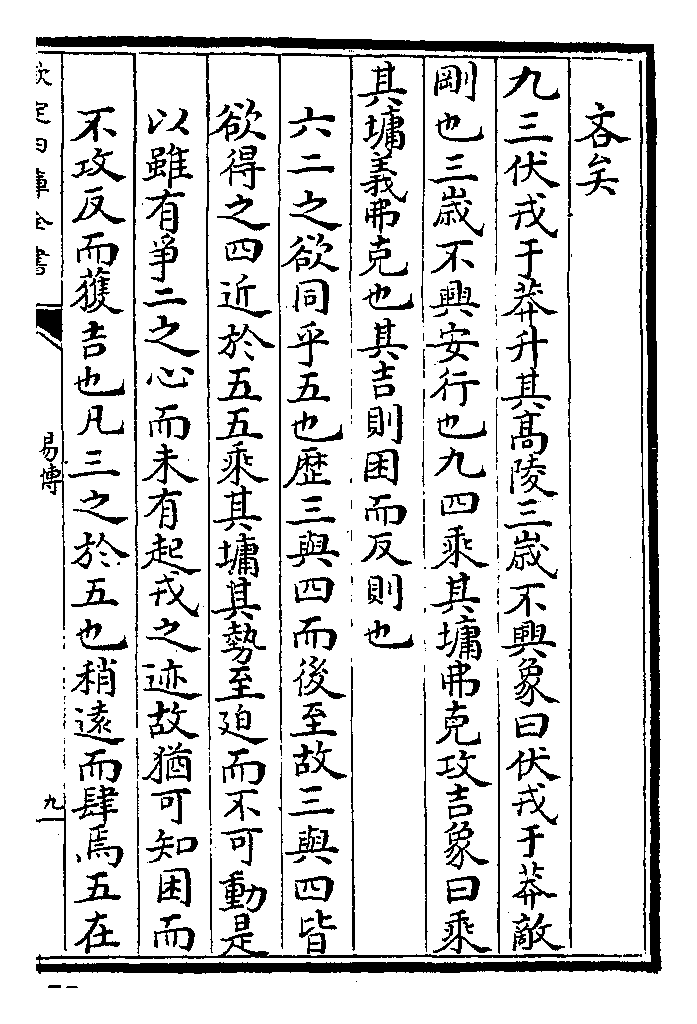 吝矣
九三伏戎于莽升其髙陵三嵗不興象曰伏戎于莽敵
剛也三嵗不興安行也九四乘其墉弗克攻吉象曰乘
其墉義弗克也其吉則困而反則也
六二之欲同乎五也歴三與四而後至故三與四皆
欲得之四近於五五乘其墉其勢至迫而不可動是
以雖有爭二之心而未有起戎之迹故猶可知困而
不攻反而獲吉也凡三之於五也稍逺而肆焉五在
欽定四庫全書
易傳
九